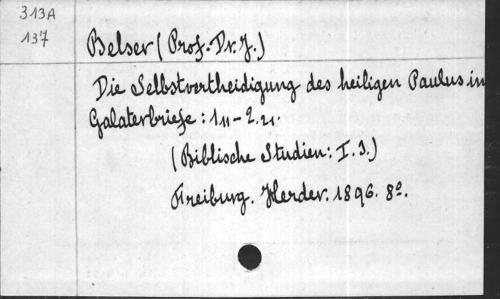 313A
137
Belser (Prof. Dr. J.)
Die Selbstvertheidigung des heiligen Paulus in
Galaterbriefe: 1,11-2,21.
(Biblische Studien: I. 3.)
Freiburg. Herder. 1896. 8º.